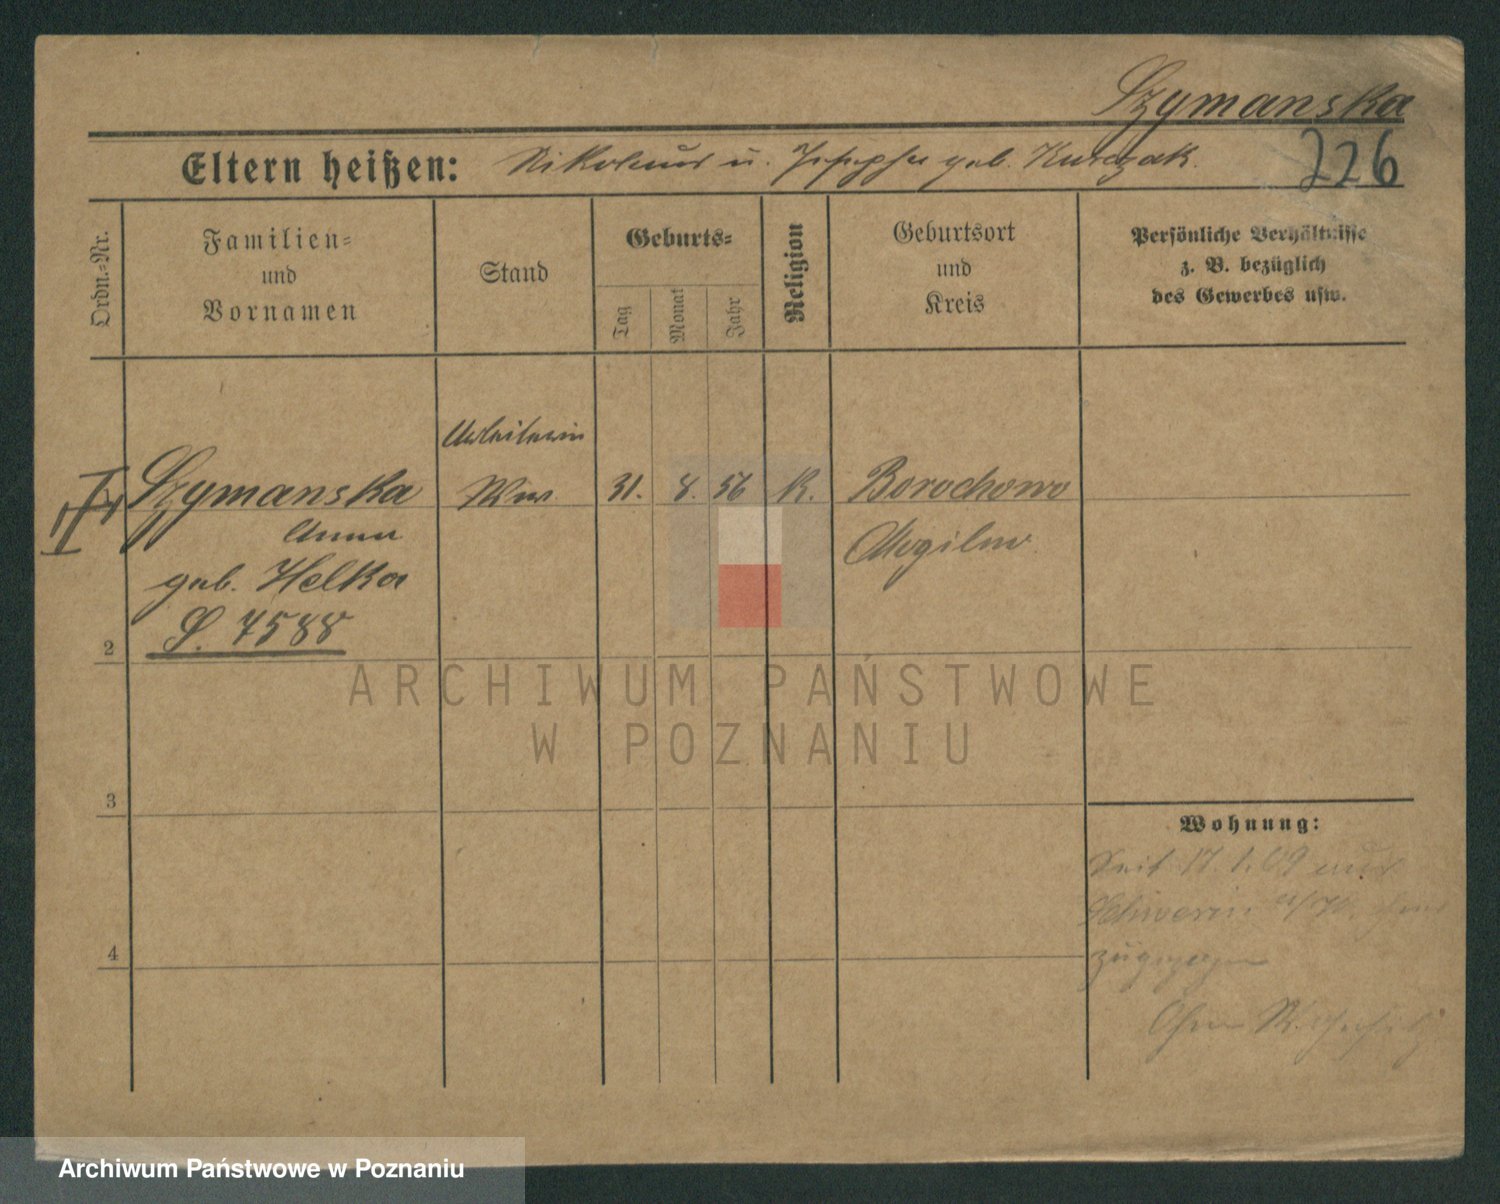 Szymanska
Eltern heißen: Nikolaus u. Josepha geb. Kurczak.
226
Ordn.=Nr.
Familien=
und
Vornamen
Stand
Geburts=
Tag
Monat
Jahr
Religion
Geburtsort
und
Kreis
Persönliche Verhältnisse
z. B. bezüglich
des Gewerbes usw.
Arbeiterin
Szymanska
Ww.
31.
8.
56
K.
Borochowo
Anna
Mogilno
geb. Helka
S. 7588
2
ARCHIWUM PAŃSTWOWE
W POZNANIU
3
Wohnung:
Seit 17.1.09 aus
Schwerin
4
zugezogen
Ohne
Archiwum Państwowe w Poznaniu